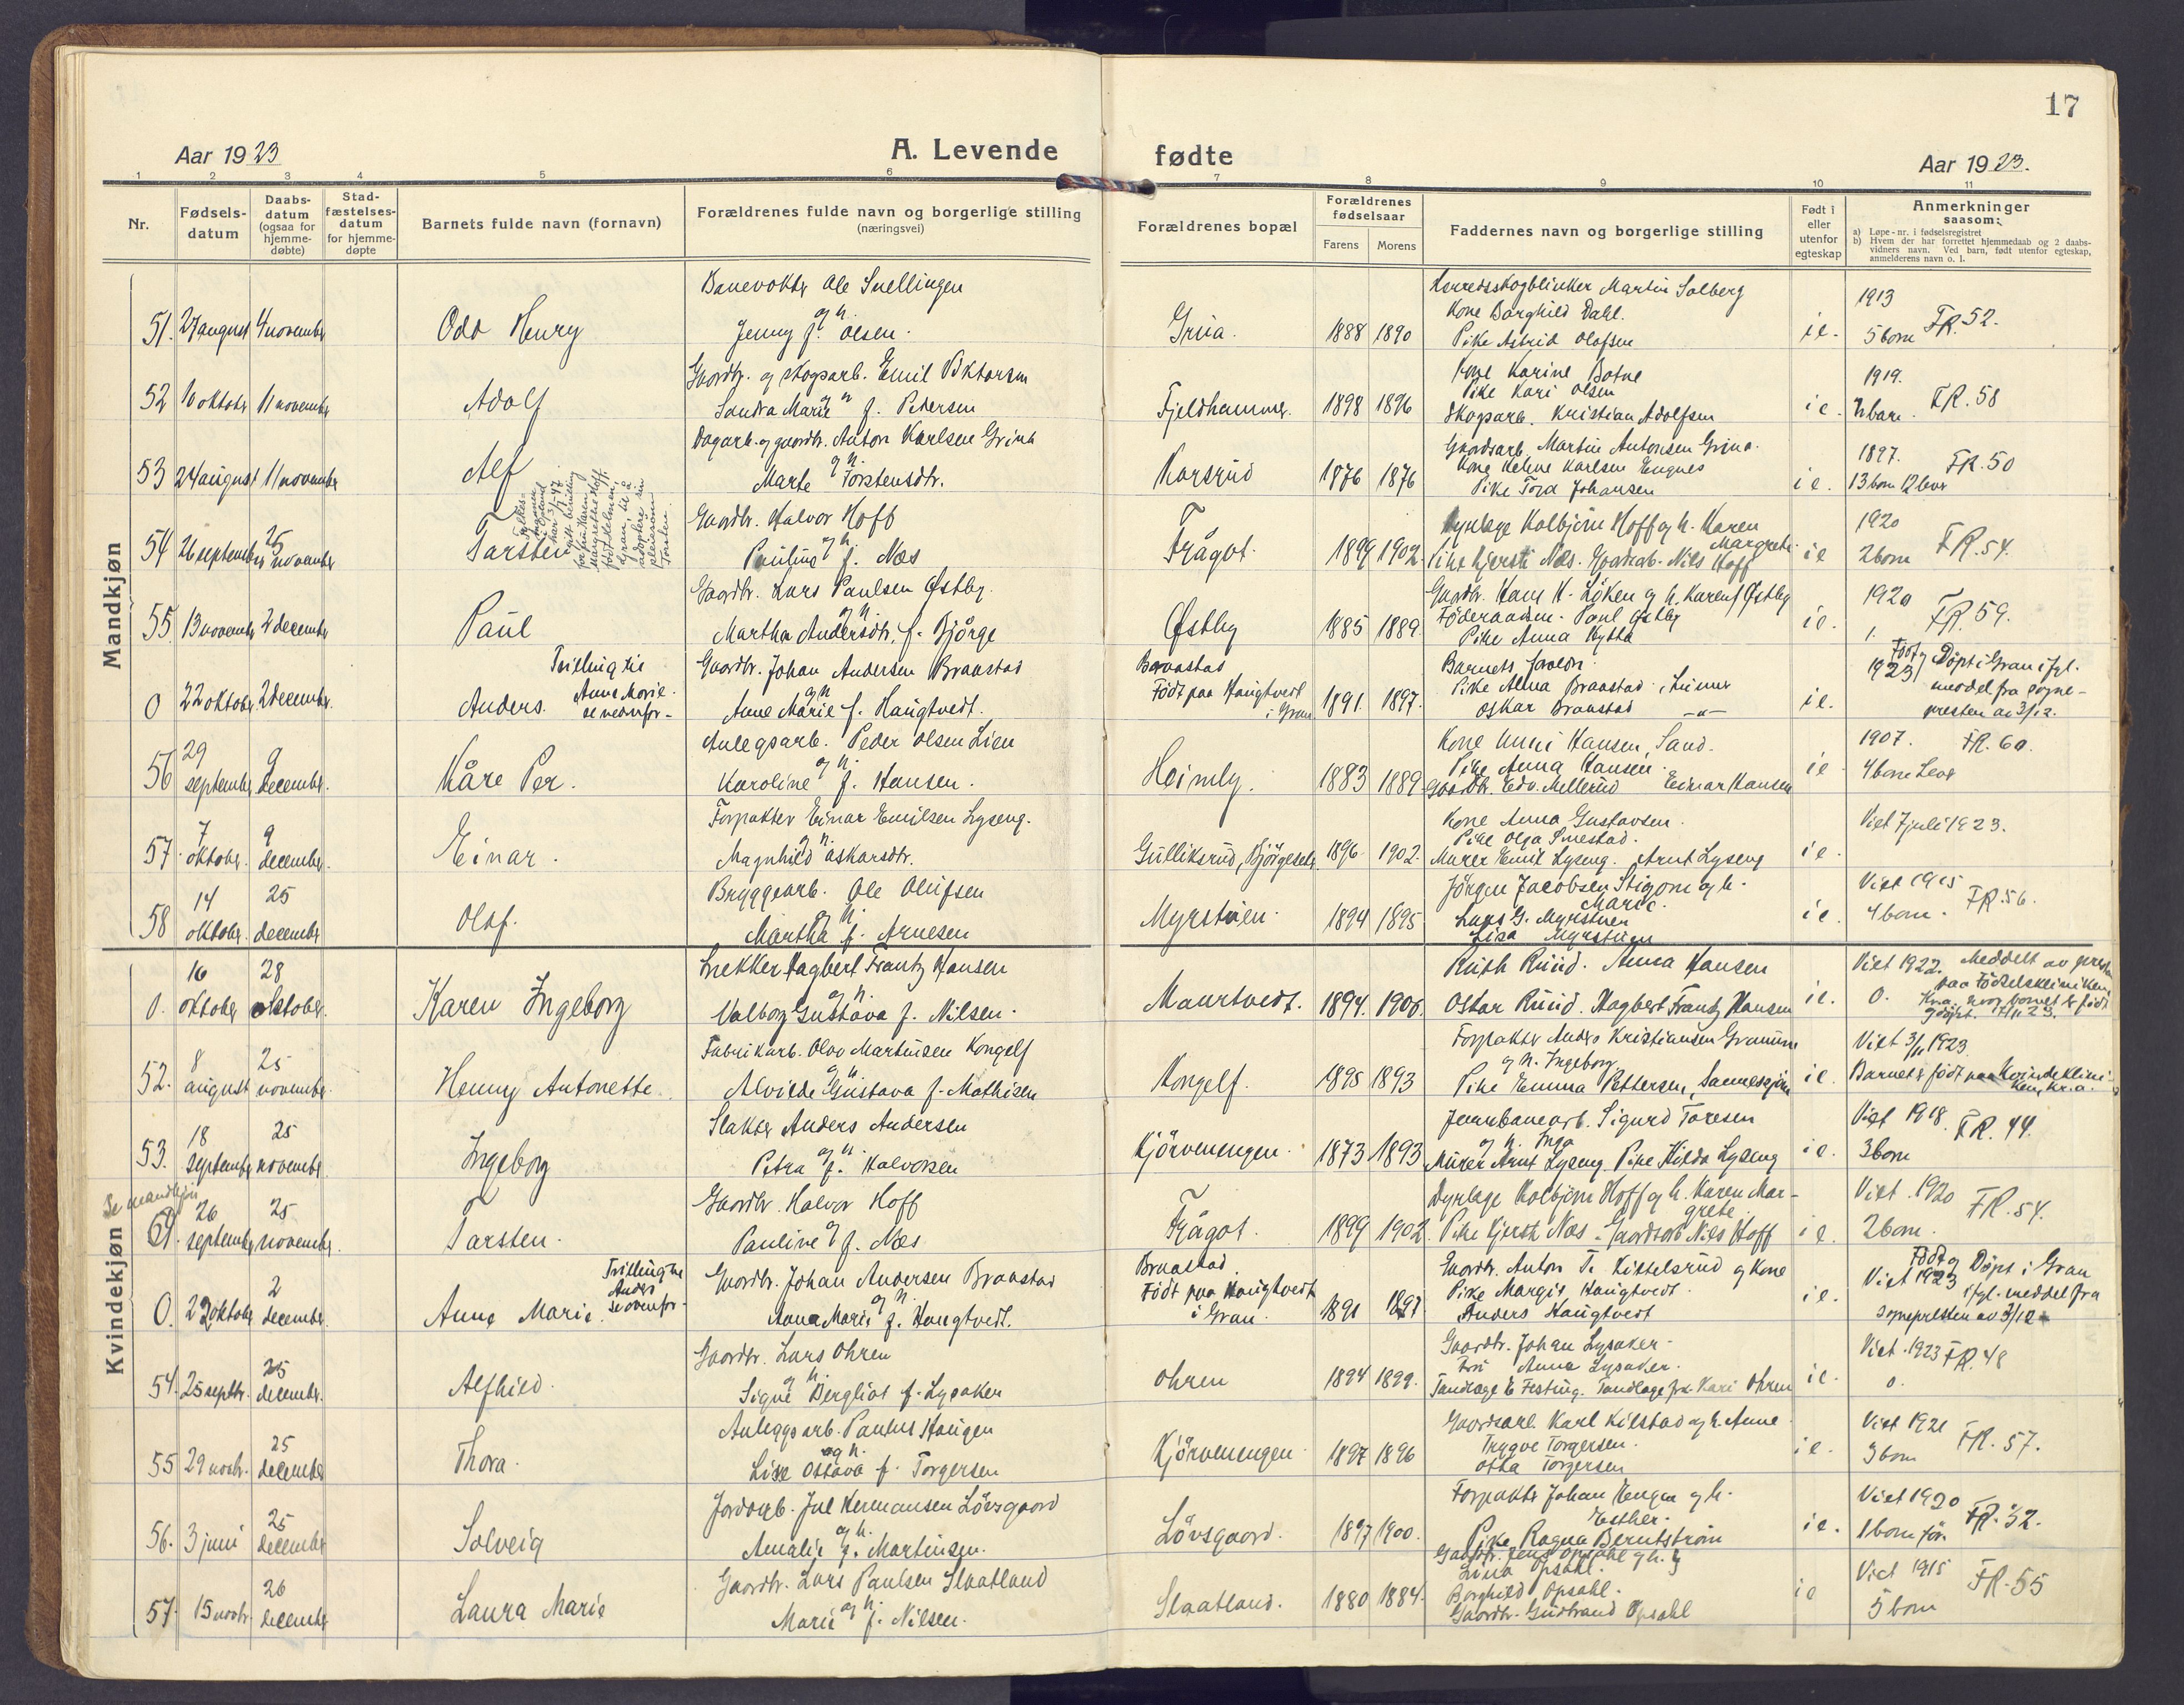 17
Aar 1923
A. Levende
fødte
Aar 1923.
1 2 3 4 5 6 7 8 9 10 11
Nr.
Fødsels-
datum
Daabs-
datum
(ogsaa for
hjemme-
døbte)
Stad-
fæstelses-
datum
for hjemme-
døpte
Barnets fulde navn (fornavn)
Forældrenes fulde navn og borgerlige stilling
(næringsvei)
Forældrenes bopæl
Forældrenes
fødselsaar
Farens Morens
Faddernes navn og borgerlige stilling
Født i
eller
utenfor
egteskap
Anmerkninger
saasom:
a) Løpe-nr. i fødselsregistret
b) Hvem der har forrettet hjemmedaab og 2 daabs-
vidners navn. Ved barn, født utenfor egteskap,
anmelderens navn o. l.
Mandkjøn
51. 27 august 4 november
Odd Henry
Banevokter Ole Snellingen
og h.
Jenny f. Olsen.
Grua. 1888 1890
Herredsskogblinker Martin Solberg
Kone Borghild Dahl.
Pike Astrid Olafsen
ie.
1913
5 born FR. 52.
52 10 oktober 11 november
Adolf
Gaardbr. og skogsarb. Emil Viktorsen
og h.
Sandra Marie f. Pedersen
Fjeldhammer. 1898 1896
Kone Karine Botne
Pike Kari Olsen
Skogsarb. Kristian Adolfsen
ie.
1919.
FR. 58
53 24 august 11 november
Alf
Dagarb. og gaardbr. Anton Karlsen Grina
og h.
Marte Torstensdtr.
Karsrud 1876 1876
Gaardsarb. Martin Antonsen Grina.
Kone Helene Karlsen Engnes
Pike Tora Johansen
ie.
1897.
13 born 12 lever FR. 50
54 26 september 25 november
Tarsten
Gaardbr. Halvor Hoff
og h.
Pauline f. Næs
Frågot. 1899 1902.
Dyrlæge Kolbjørn Hoff og h. Karen
Margrete.
Pike Kjersti Næs. Gaardsarb. Nils Hoff
ie
1920
2 born FR. 54.
55. 13 november 2 december
Paul
Gaardbr. Lars Paulsen Østby.
og h.
Martha Andersdtr. f. Bjørge
Østby 1885 1889.
Gaardbr. Hans H. Løken og h. Karen f Østby
Føderaadsm. Paul Østby
Pike Anna Hytta
ie.
1920
1. FR. 59.
0 22 oktober 2 december.
Anders.
Tvilling til
Anne Marie.
se nedenfor-
Gaardbr. Johan Andersen Braastad
og h
Anne Marie f. Haugtvedt.
Braastad
Født paa Haugtvedt
i Gran 1891. 1897.
Barnets forældre.
Pike Alma Braastad i Lunner
Oskar Braastad -"-
ie.
Født og Døpt i Gran ifgl.
1923 meddel fra sogne-
presten av 3/12.
56 29 september 9 december.
Kåre Per.
Anlegsarb. Peder Olsen Lien
og h.
Karoline f. Hansen.
Heimly. 1883 1889
Kone Unni Hansen, Sand.
Pike Anna Hansen.
Gaardbr. Edv. Mellerud Einar Hansen
ie
1907. FR. 60.
4 born Lever
57. 7 oktober. 9 december.
Einar.
Forpakter Einar Emilsen Lyseng.
og h.
Magnhild Oskarsdtr.
Gulliksrud, Bjørgeseter. 1896. 1902.
Kone Anna Gustavsen.
Pike Olga Smestad.
Murer Emil Lyseng. Arnt Lyseng
ie.
Viet 7 juli 1923.
58 14 oktober. 25 december
Olaf.
Bryggearb. Ole Olufsen
og h.
Martha f. Arnesen
Myrstuen. 1894 1895
Jørgen Jacobsen Stigom og h.
Marie.
Lars G. Myrstuen
Lisa Myrstuen
ie.
Viet 1915
4 born. FR. 56.
Kvindekjøn
0. 16 oktober 28 oktober.
Karen Ingeborg
Snekker Hagbert Frantz Hansen
og h.
Valborg Gustava f. Nilsen.
Maurtvedt. 1894. 1906.
Ruth Ruud. Anna Hansen
Oskar Ruud. Hagbert Frantz Hansen
ie.
Viet 1922. Meddelt av presten
0. paa Fødselskliniken
Kra. hvor barnet er født
52. 8 august 25 november.
Henny Antonette.
Fabrikarb. Olav Martinsen Kongelf
og h.
Alvilde Gustava f. Mathisen
Kongelf. 1895 1893
Forpakter Anders Kristiansen
og h. Ingeborg
Pike Emma Pettersen,
ie.
Viet 3/11 1923
Barnet født paa Kvindeklini-
ken, Kr.a.
53. 18 september 25 november.
Ingeborg
Slakter Anders Andersen
og h.
Petra f. Halvorsen
Kjørvenengen. 1873 1893
Jernbanearb. Sigurd Toresen
og h. Inga
Murer Arnt Lyseng. Pike Hilda Lyseng
ie.
Viet 1918. FR. 44.
3 born
Se mandkjøn
26 september 25 november.
Tarsten.
Gaardbr. Halvor Hoff
og
Pauline f. Næs
Frågot. 1899 1902.
Dyrlæge Kolbjørn Hoff og h. Karen Mar-
grete
Pike Kjersti Næs. Gaardsarb Nils Hoff
ie.
Viet. 1920 FR. 54.
2 born.
0. 22 oktober 2 december.
Anne Marie.
Tvilling til
Anders
se ovenfor-
Gaardbr. Johan Andersen Braastad
og h.
Anne Marie f. Haugtvedt.
Braastad
Født paa Haugtvedt
i Gran. 1891 1897
Gaardbr. Anton T. Kittelsrud og kone
Pike Margit Haugtvedt.
Anders Haugtvedt
ie.
Født og Døpt i Gran
Viet 1923 ifgl. meddel fra
sognepresten av 3/12
54. 25 septbr. 25 december.
Alfhild.
Gaardbr. Lars Ohren
og h.
Signe Bergliot f. Lysaker
Ohren 1894 1899.
Gaardbr. Johan Lysaker.
Fru Anna Lysaker.
Tandlæge E Festing. Tandlæge frk. Kari Ohren
ie.
Viet. 1923 FR. 48
0.
55 29 novbr. 25 december
Thora.
Anleggsarb. Paulus Haugen
og h.
Lise Ottava f. Torgersen
Kjørvenengen. 1897 1896
Gaardsarb. Karl Kilstad og h. Anne
Trygve Torgersen.
Otta Torgersen
ie.
Viet 1921
3 born FR. 57.
56. 3 juni 25 december
Solveig
Jordarb. Jul Hermansen Løvsgaard
og h.
Amalie f. Martinsen.
Løvsgaard. 1897 1900.
Forpakter Johan Hengen og h.
Esther.
Pike Ragna Berntström
ie.
Viet 1920
1 born før. FR. 32.
57. 15 novbr. 26 december
Laura Marie
Gaardbr. Lars Paulsen Slaatland
og h.
Marie f. Nilsen.
Slaatland. 1880 1884.
Gaardbr. Jens Opsahl og h.
Lina Opsahl.
Borghild Opsahl.
Gaardbr. Gudbrand Opsahl
ie
Viet 1915
5 born FR. 55